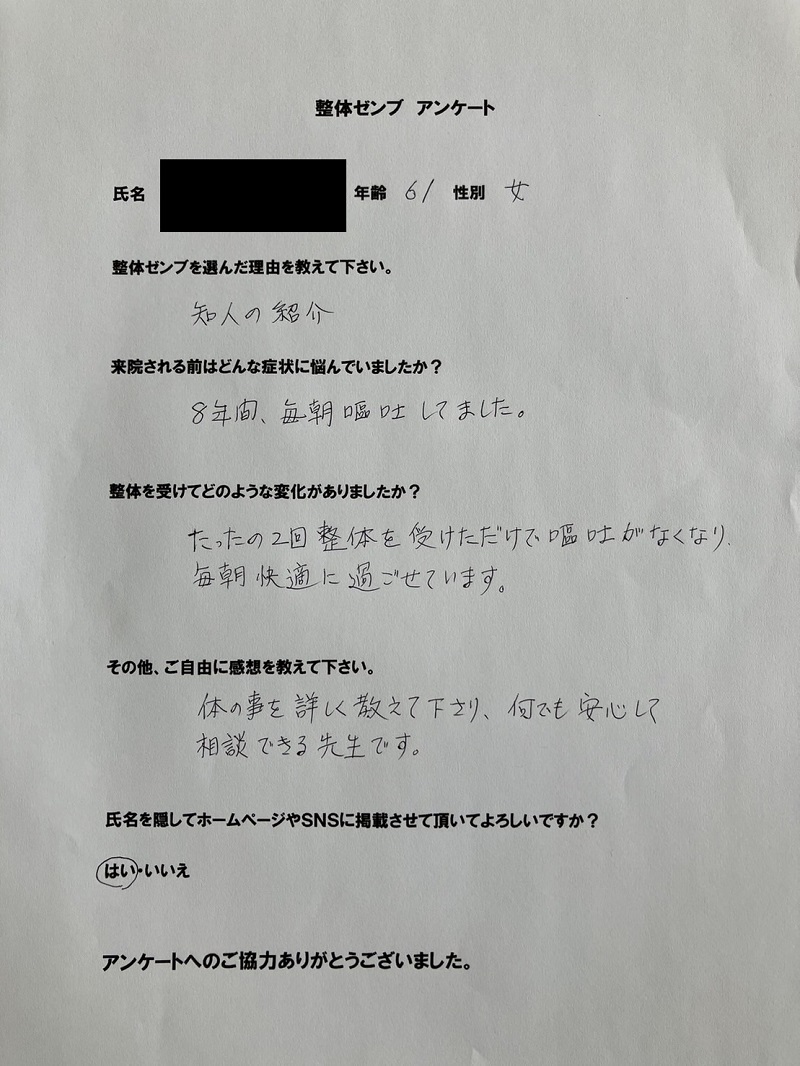 整体ゼンブ アンケート
氏名 年齢 61 性別 女
整体ゼンブを選んだ理由を教えて下さい。
知人の紹介
来院される前はどんな症状に悩んでいましたか？
8年間、毎朝嘔吐してました。
整体を受けてどのような変化がありましたか？
たったの2回整体を受けただけで嘔吐がなくなり、
毎朝快適に過ごせています。
その他、ご自由に感想を教えて下さい。
体の事を詳しく教えて下さり、何でも安心して
相談できる先生です。
氏名を隠してホームページやSNSに掲載させて頂いてよろしいですか？
はい・いいえ
アンケートへのご協力ありがとうございました。